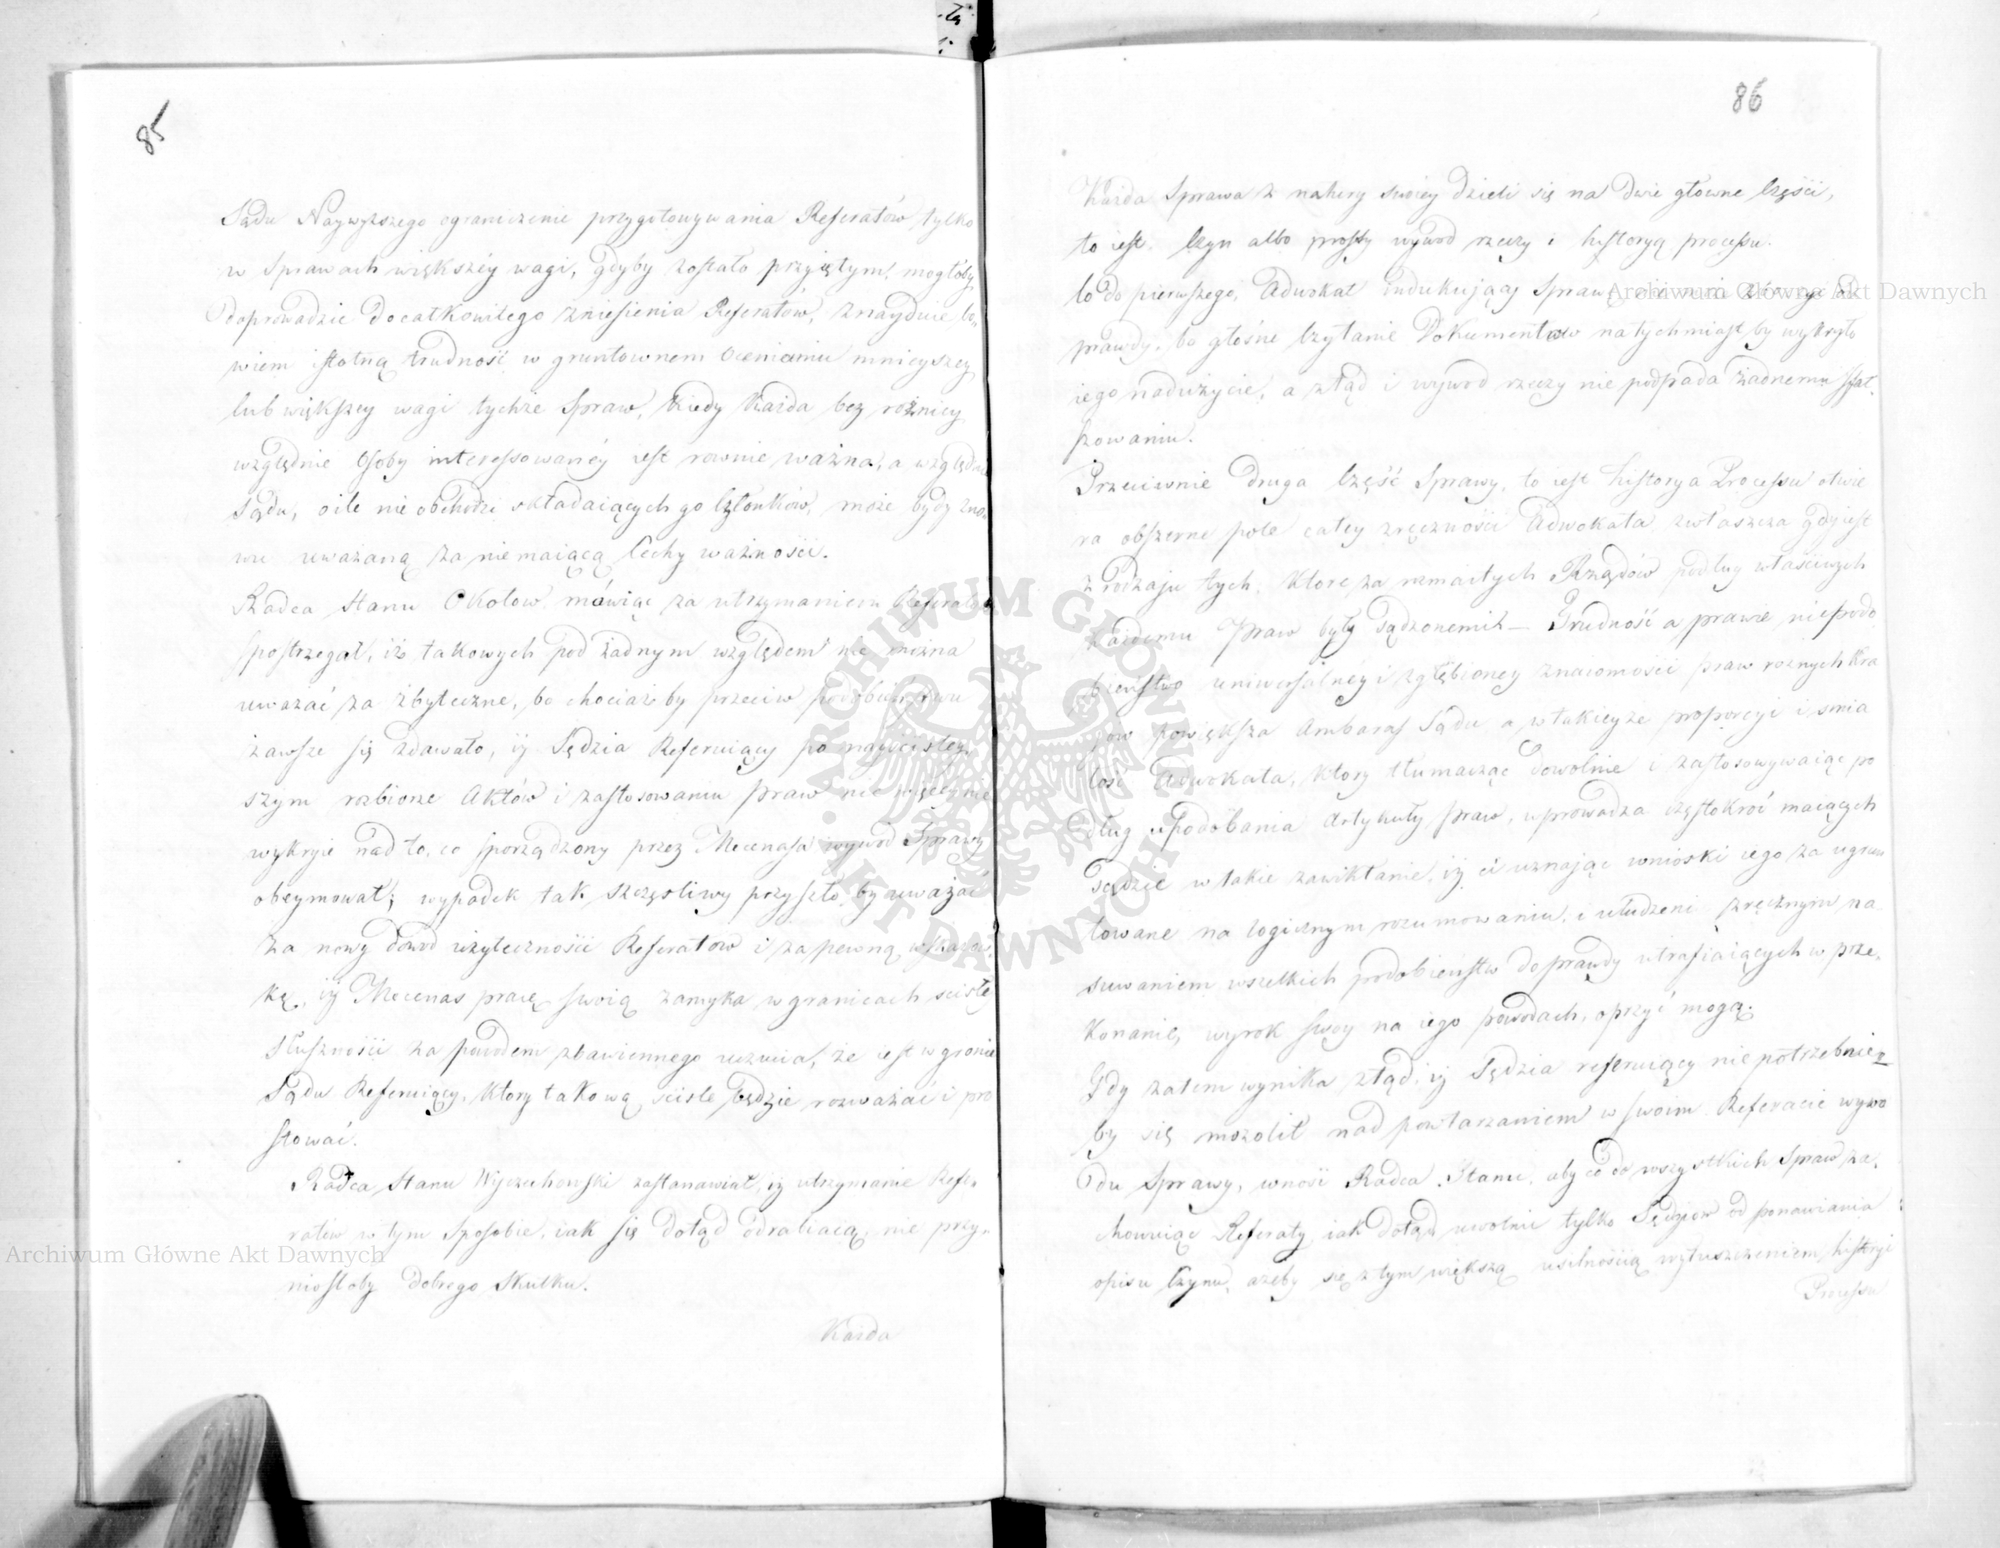 85
Sądu Naywyższego ograniczenie przygotowywania Referatów tylko
w Sprawach większéy wagi, gdyby zostało przyiętym, mogłoby
doprowadzić do całkowitego zniesienia Referatów, znayduie bo-
wiem istotną trudność w gruntownem ocenianiu mnieyszey
lub większey wagi tychże Spraw, kiedy każda bez różnicy
względnie Osoby interessowanéy iest rownie ważna, a względnie
Sądu, o ile nie obchodzi składaiących go Członków, może bydź zno-
wu uważaną za nie maiącą Cechy ważności.
Radca Stanu Okołow mówiąc za utrzymaniem Referatów
postrzegał, iż takowych pod żadnym względem nie można
uważać za zbyteczne, bo chociaż by przeciw podobieństwu
zawsze się zdawało, iż Sędzia Referuiący po nayściśley-
szym rozbiorze Aktów i zastosowaniu praw nic więcey nie
wykryie nad to, co sporządzony przez Mecenasa wywod Sprawy
obeymował; wypadek tak szczęśliwy przyszło by uważać
za nowy dowod użyteczności Referatow i zapewną wskazów-
kę, iż Mecenas pracę swoią zamyka w granicach scisłey
słuszności za powodem zbawiennego uczucia, że iest w gronie
Sądu Referuiący, ktory takową scisle będzie rozważać i pro
stować.
Radca Stanu Wyczechowski zastanawiał, iż utrzymanie Refe-
ratów w tym Sposobie, iak się dotąd odrabiaią, nie przy-
niosłoby dobrego Skutku.
Każda
86
Każda Sprawa z natury swoiey dzieli się na dwie główne Części,
to iest. Czyn albo prosty wywod rzeczy i historyą processu.
Co do pierwszego, Adwokat indukuiący Sprawę nie może zboczyć od
prawdy, bo głośne Czytanie Dokumentow natychmiast by wykryło
iego nadużycie, a ztąd i wywod rzeczy nie podpada żadnemu sfał-
szowaniu.
Przeciwnie druga Część Sprawy, to iest historya Processu otwie
ra obszerne pole całey zręczności Adwokata zwłaszcza gdy iest
z rodzaju tych, ktore za rozmaitych Rządów podług właściwych
każdemu Praw były sądzonemi – Trudność a prawie niepodo
bieństwo uniwersalnéy i zgłębioney znaiomości praw roznych kra
iow powiększa Ambaras Sądu a w takieyże proporcyi i smia
łość Adwokata, ktory tłumacząc dowolnie i zastosowywaiąc po
dług upodobania Artykuły praw, uprowadza częstokroć maiących
sądzić w takie zawikłanie, iż ci uznając wnioski iego za ugrun
towane na logicznym rozumowaniu, i ułudzeni zręcznym na
suwaniem wszelkich podobieństw do prawdy utrafiaiących w prze-
konanie, wyrok swoy na iego powodach, oprzyć mogą.
Gdy zatem wynika ztąd, iż Sędzia referuiący niepotrzebnie
by się mozolił nad powtarzaniem w swoim Referacie wywo
du Sprawy, wnosi Radca Stanu, aby co do wszystkich Spraw za-
chowuiąc Referaty iak dotąd uwolnić tylko Sędziow od ponawiania
opisu Czynu, ażeby się z tym większą usilnością wytłuszczeniem historyi
Processu
Archiwum Główne Akt Dawnych
Archiwum Główne Akt Dawnych
ARCHIWUM GŁÓWNE AKT DAWNYCH